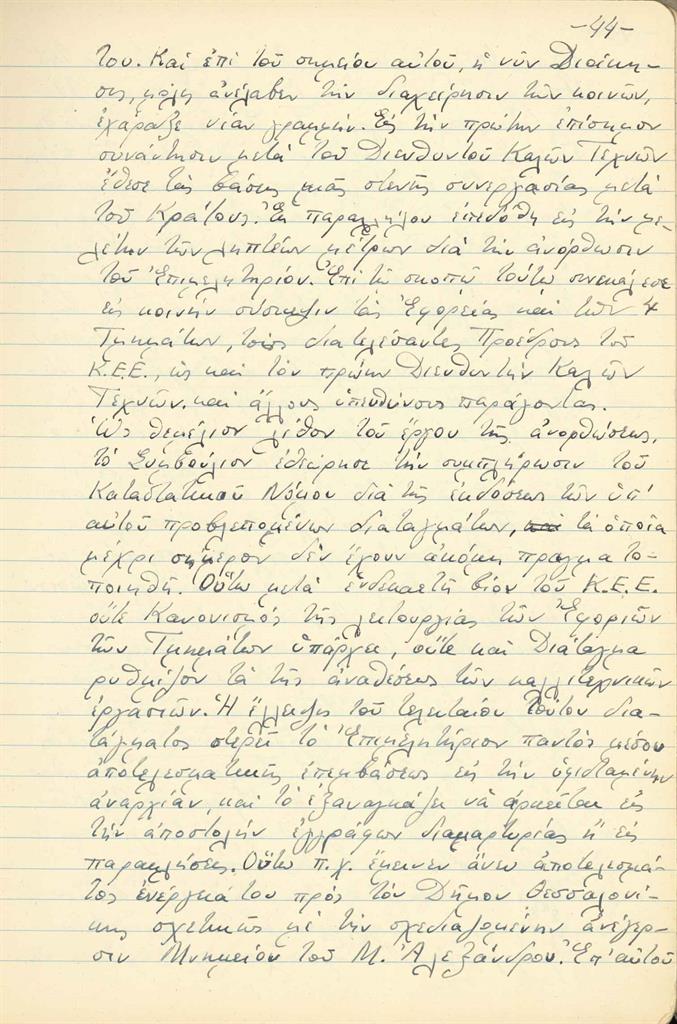 -44-
του. Καὶ ἐπὶ τοῦ σημείου αὐτοῦ, ἡ νῦν Διοίκη-
σις, μόλις ἀνέλαβεν τὴν διαχείρησιν τῶν κοινῶν,
ἐχάραξε νέαν γραμμήν. Εἰς τὴν πρώτην ἐπίσημον
συνάντησιν μετὰ τοῦ Διευθυντοῦ Καλῶν Τεχνῶν
ἔθεσε τὰς βάσεις μιᾶς στενῆς συνεργασίας μετὰ
τοῦ Κράτους. Ἐκ παραλλήλου ἐπεδόθη εἰς τὴν με-
λέτην τῶν ληπτέων μέτρων διὰ τὴν ἀνόρθωσιν
τοῦ Ἐπιμελητηρίου. Ἐπὶ τῷ σκοπῷ τούτῳ συνεκάλεσε
εἰς κοινὴν σύσκεψιν τὰς Ἐφορείας καὶ τῶν 4
Τμημάτων, τοὺς διατελέσαντες Προέδρους τοῦ
Κ.Ε.Ε., ὡς καὶ τὸν πρώην Διευθυντὴν Καλῶν
Τεχνῶν. καὶ ἄλλους ὑπευθύνους παράγοντας.
Ὡς θεμέλιον λίθον τοῦ ἔργου τῆς ἀνορθώσεως,
τὸ Συμβούλιον ἐθεώρησε τὴν συμπλήρωσιν τοῦ
Καταστατικοῦ Νόμου διὰ τῆς ἐκδόσεως τῶν ὑπ'
αὐτοῦ προβλεπομένων διαταγμάτων, καὶ τὰ ὁποῖα
μέχρι σήμερον δὲν ἔχουν ἀκόμη πραγματο-
ποιηθῆ. Οὕτω μετὰ ἑνδεκαετῆ βίον τοῦ Κ.Ε.Ε.
οὔτε Κανονισμὸς τῆς λειτουργίας τῶν Ἐφοριῶν
τῶν Τμημάτων ὑπάρχει, οὔτε καὶ Διάταγμα
ρυθμίζον τὰ τῆς ἀναθέσεως τῶν καλλιτεχνικῶν
ἐργασιῶν. Ἡ ἔλλειψις τοῦ τελευταίου τούτου δια-
τάγματος στερεῖ τὸ Ἐπιμελητήριον παντὸς μέσου
ἀποτελεσματικῆς ἐπεμβάσεως εἰς τὴν ὑφισταμένην
ἀναρχίαν, καὶ τὸ ἐξαναγκάζει νὰ ἀρκεῖται εἰς
τὴν ἀποστολὴν ἐγγράφων διαμαρτυρίας ἢ εἰς
παρακλήσεις. Οὕτω π.χ. ἔμεινεν ἄνευ ἀποτελέσμα-
τος ἐνέργειά του πρὸς τὸν Δῆμον Θεσσαλονί-
κης σχετικῶς μὲ τὴν σχεδιαζομένην ἀνέγερ-
σιν Μνημείου τοῦ Μ. Ἀλεξάνδρου. Ἐπ' αὐτοῦ